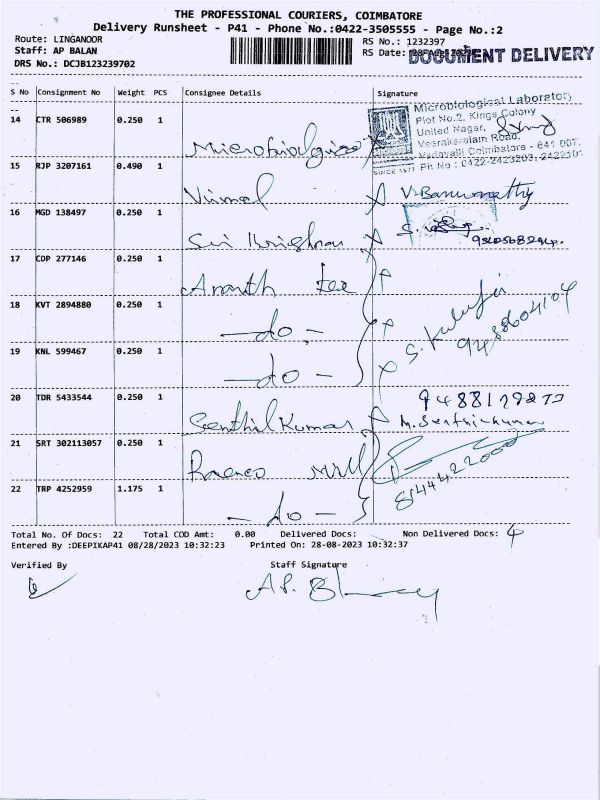 THE PROFESSIONAL COURIERS, COIMBATORE
Delivery Runsheet - P41 - Phone No.:0422-3505555 - Page No.:2
Route: LINGANOOR
Staff: AP BALAN
DRS No.: DCJB123239702
RS No.: 1232397
RS Date:
DOCUMENT DELIVERY
S No Consignment No Weight PCS Consignee Details Signature
14 CTR 506989 0.250 1
Microbiological Laboratory
Plot No.2, Kings Colony
United Nagar,
Veerakeralam Road,
Vadavalli Coimbatore - 641 007.
SINCE 1977 Ph No : 0422-2423203, 2422101
15 RJP 3207161 0.490 1 Vimal
16 MGD 138497 0.250 1 Sri Krishna
17 CDP 277146 0.250 1 Ananth Tex
18 KVT 2894880 0.250 1 - do -
19 KNL 599467 0.250 1 - do -
20 TDR 5433544 0.250 1 Senthil Kumar M. Senthilkumar
21 SRT 302113057 0.250 1 Mill 8144422000
22 TRP 4252959 1.175 1 - do -
Total No. Of Docs: 22 Total COD Amt: 0.00 Delivered Docs: Non Delivered Docs: 4
Entered By :DEEPIKAP41 08/28/2023 10:32:23 Printed On: 28-08-2023 10:32:37
Verified By Staff Signature